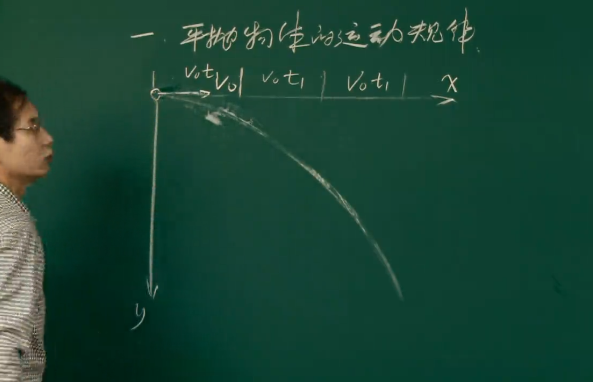 一. 平抛物体的运动规律
v₀t₁ v₀ v₀t₁ v₀t₁ x
y